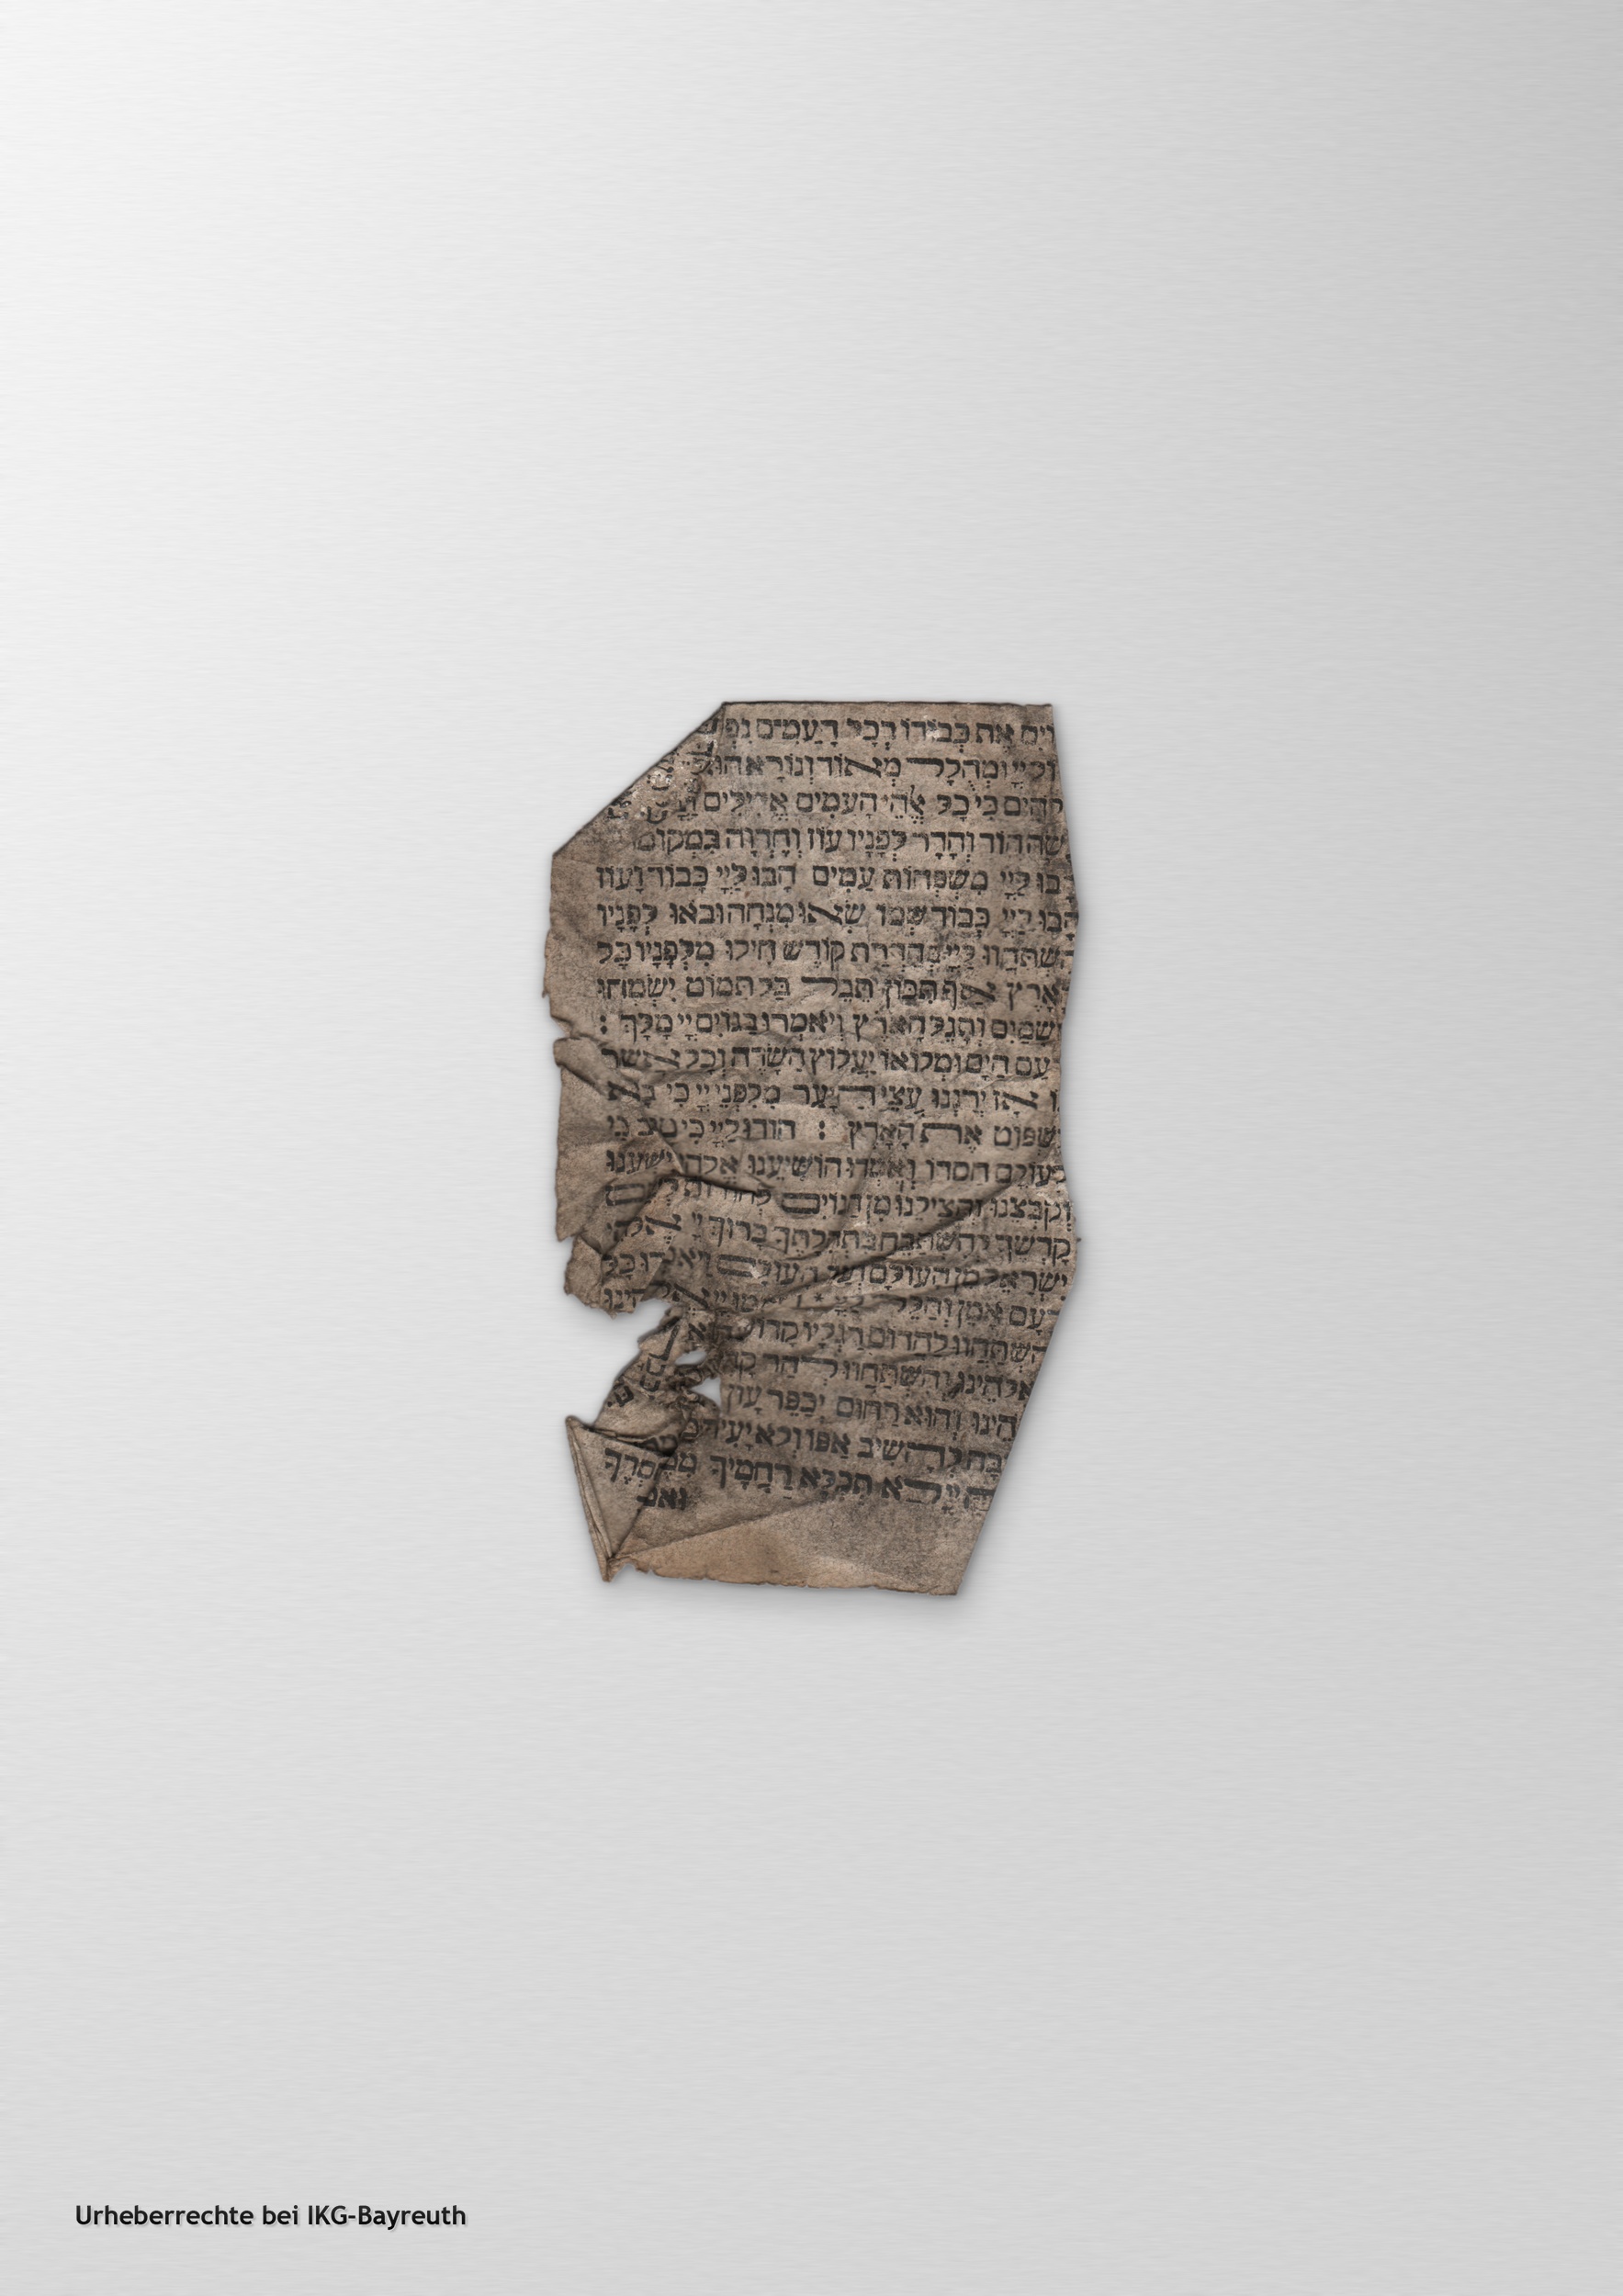 את כבודו בכל העמים
ומהלל מאוד ונורא הוא
כי כל אלהי העמים אלילים
הוד והדר לפניו עוז וחדוה במקומו
לַיְיָ מִשְפחות עַמִים הָבוּ לַיְיָ כָּבוֹד וָעוֹז
הבו לַיְיָ כְּבוד שמו שאו מנחה ובאו לפניו
לַיְיָ בהדרת קודש חילו מלפניו כל
הארץ אף תכון תבל בל תמוט ישמחו
השמים ותגל הארץ ויאמרו בגוים יי מָלָךְ :
עם הים ומלואו יעלוץ השדה וכל אשר
אז ירננו עצי היער מלפני יי כי בא
לשפוט את הארץ : הודו ליי כי טוב כי
לעולם חסדו ואמרו הושיענו אלהי ישענו
וקבצנו והצילנו מן הגוים להודות לשם
קדשך להשתבח בתהלתך ברוך יי אלהי
ישראל מן העולם ועד העולם ויאמרו כל
העם אמן והלל
השתחוו להדום רגליו קדוש הוא
אלהינו והשתחוו להר
והוא רחום יכפר עון
להשיב אפו ולא יעיר
לא תכלא רחמיך
Urheberrechte bei IKG-Bayreuth